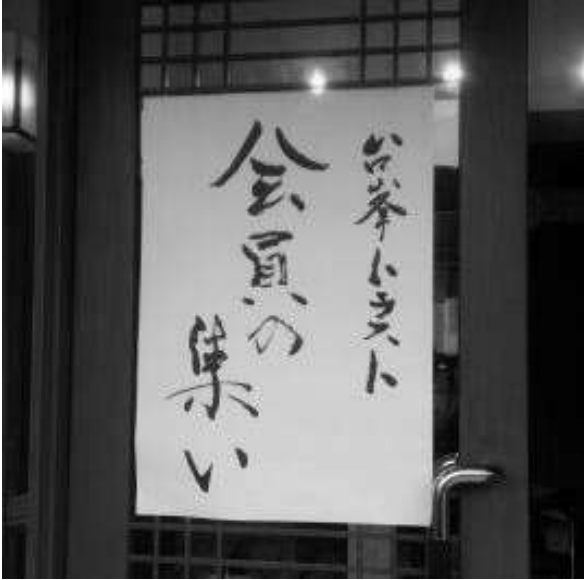 台峯トラスト
会員の
集い